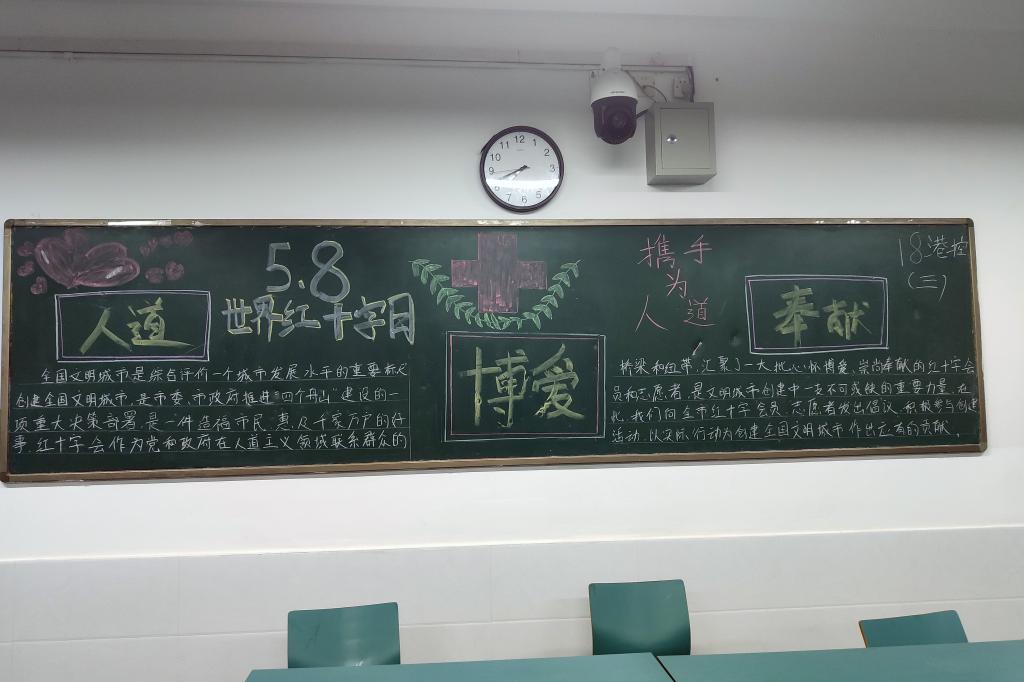 12
1
2
3
6
7
9
10
11
5.8
世界红十字日
人道
博爱
携手
为
人道
奉献
18港控
(三)
全国文明城市是综合评价一个城市发展水平的重要标志
创建全国文明城市,是市委、市政府推进"四个舟山"建设的一
项重大决策部署,是一件造福市民、惠及千家万户的好
事,红十字会作为党和政府在人道主义领域联系群众的
桥梁和纽带,汇聚了一大批心怀博爱、崇尚奉献的红十字会
员和志愿者,是文明城市创建中一支不可或缺的重要力量,在
此,我们向全市红十字会员、志愿者发出倡议,积极参与创建
活动,以实际行动为创建全国文明城市作出应有的贡献。